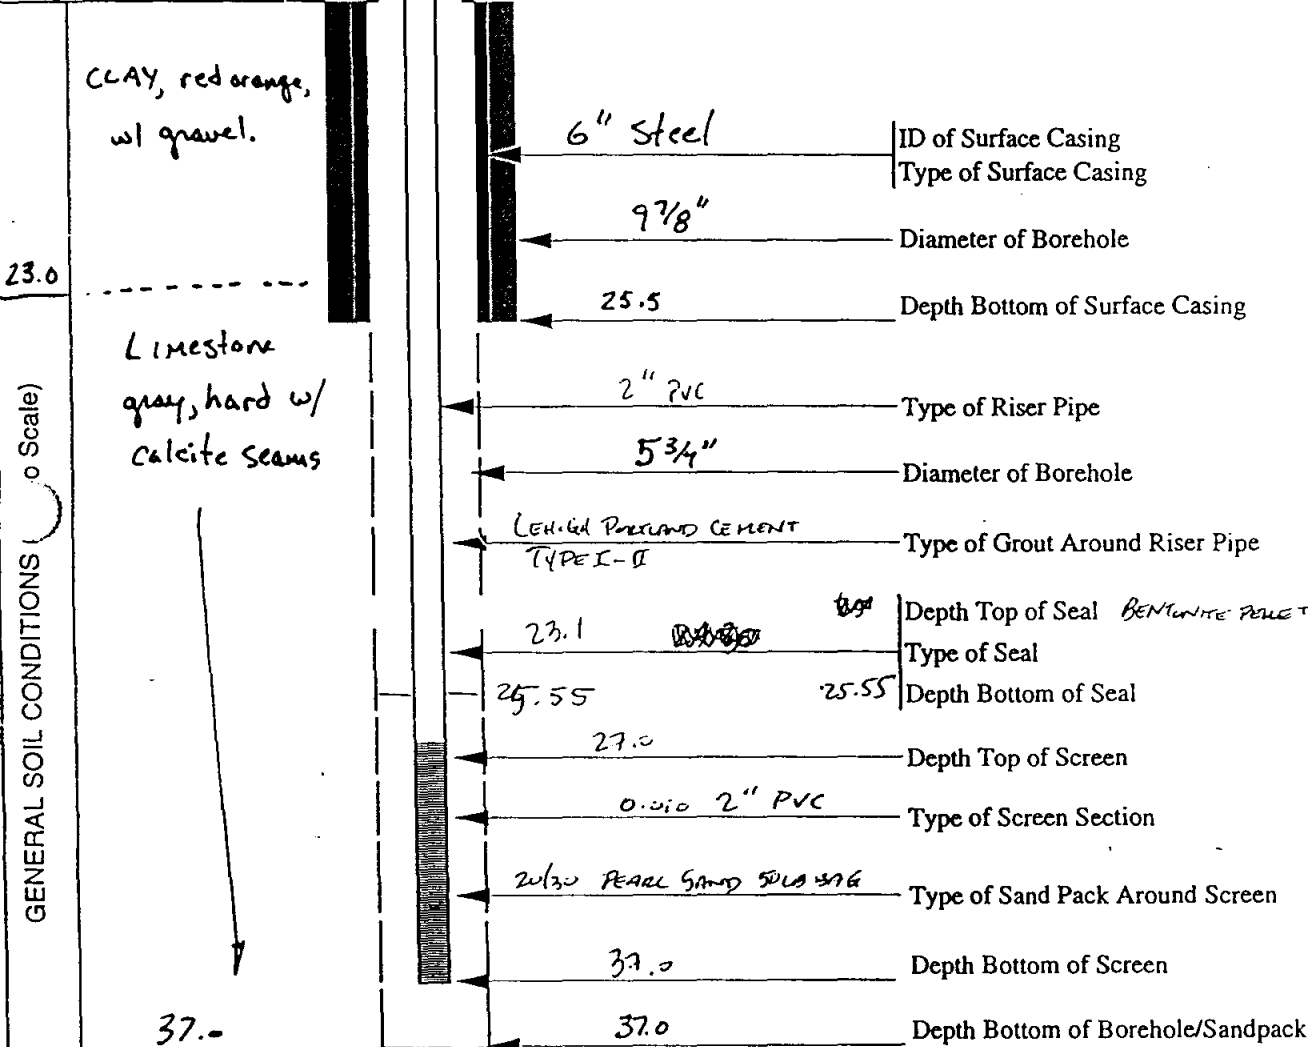 CLAY, red orange,
w/ gravel.
23.0
Limestone
gray, hard w/
Calcite seams
37.-
GENERAL SOIL CONDITIONS ( o Scale)
6" Steel
ID of Surface Casing
Type of Surface Casing
9 7/8"
Diameter of Borehole
25.5
Depth Bottom of Surface Casing
2" PVC
Type of Riser Pipe
5 3/4"
Diameter of Borehole
LEHIGH PORTLAND CEMENT
TYPE I-II
Type of Grout Around Riser Pipe
Depth Top of Seal BENTONITE PELLET
23.1
Type of Seal
25.55 25.55 Depth Bottom of Seal
27.0
Depth Top of Screen
0.010 2" PVC
Type of Screen Section
20/30 PEARL SAND 50LB BAG
Type of Sand Pack Around Screen
37.0
Depth Bottom of Screen
37.0
Depth Bottom of Borehole/Sandpack